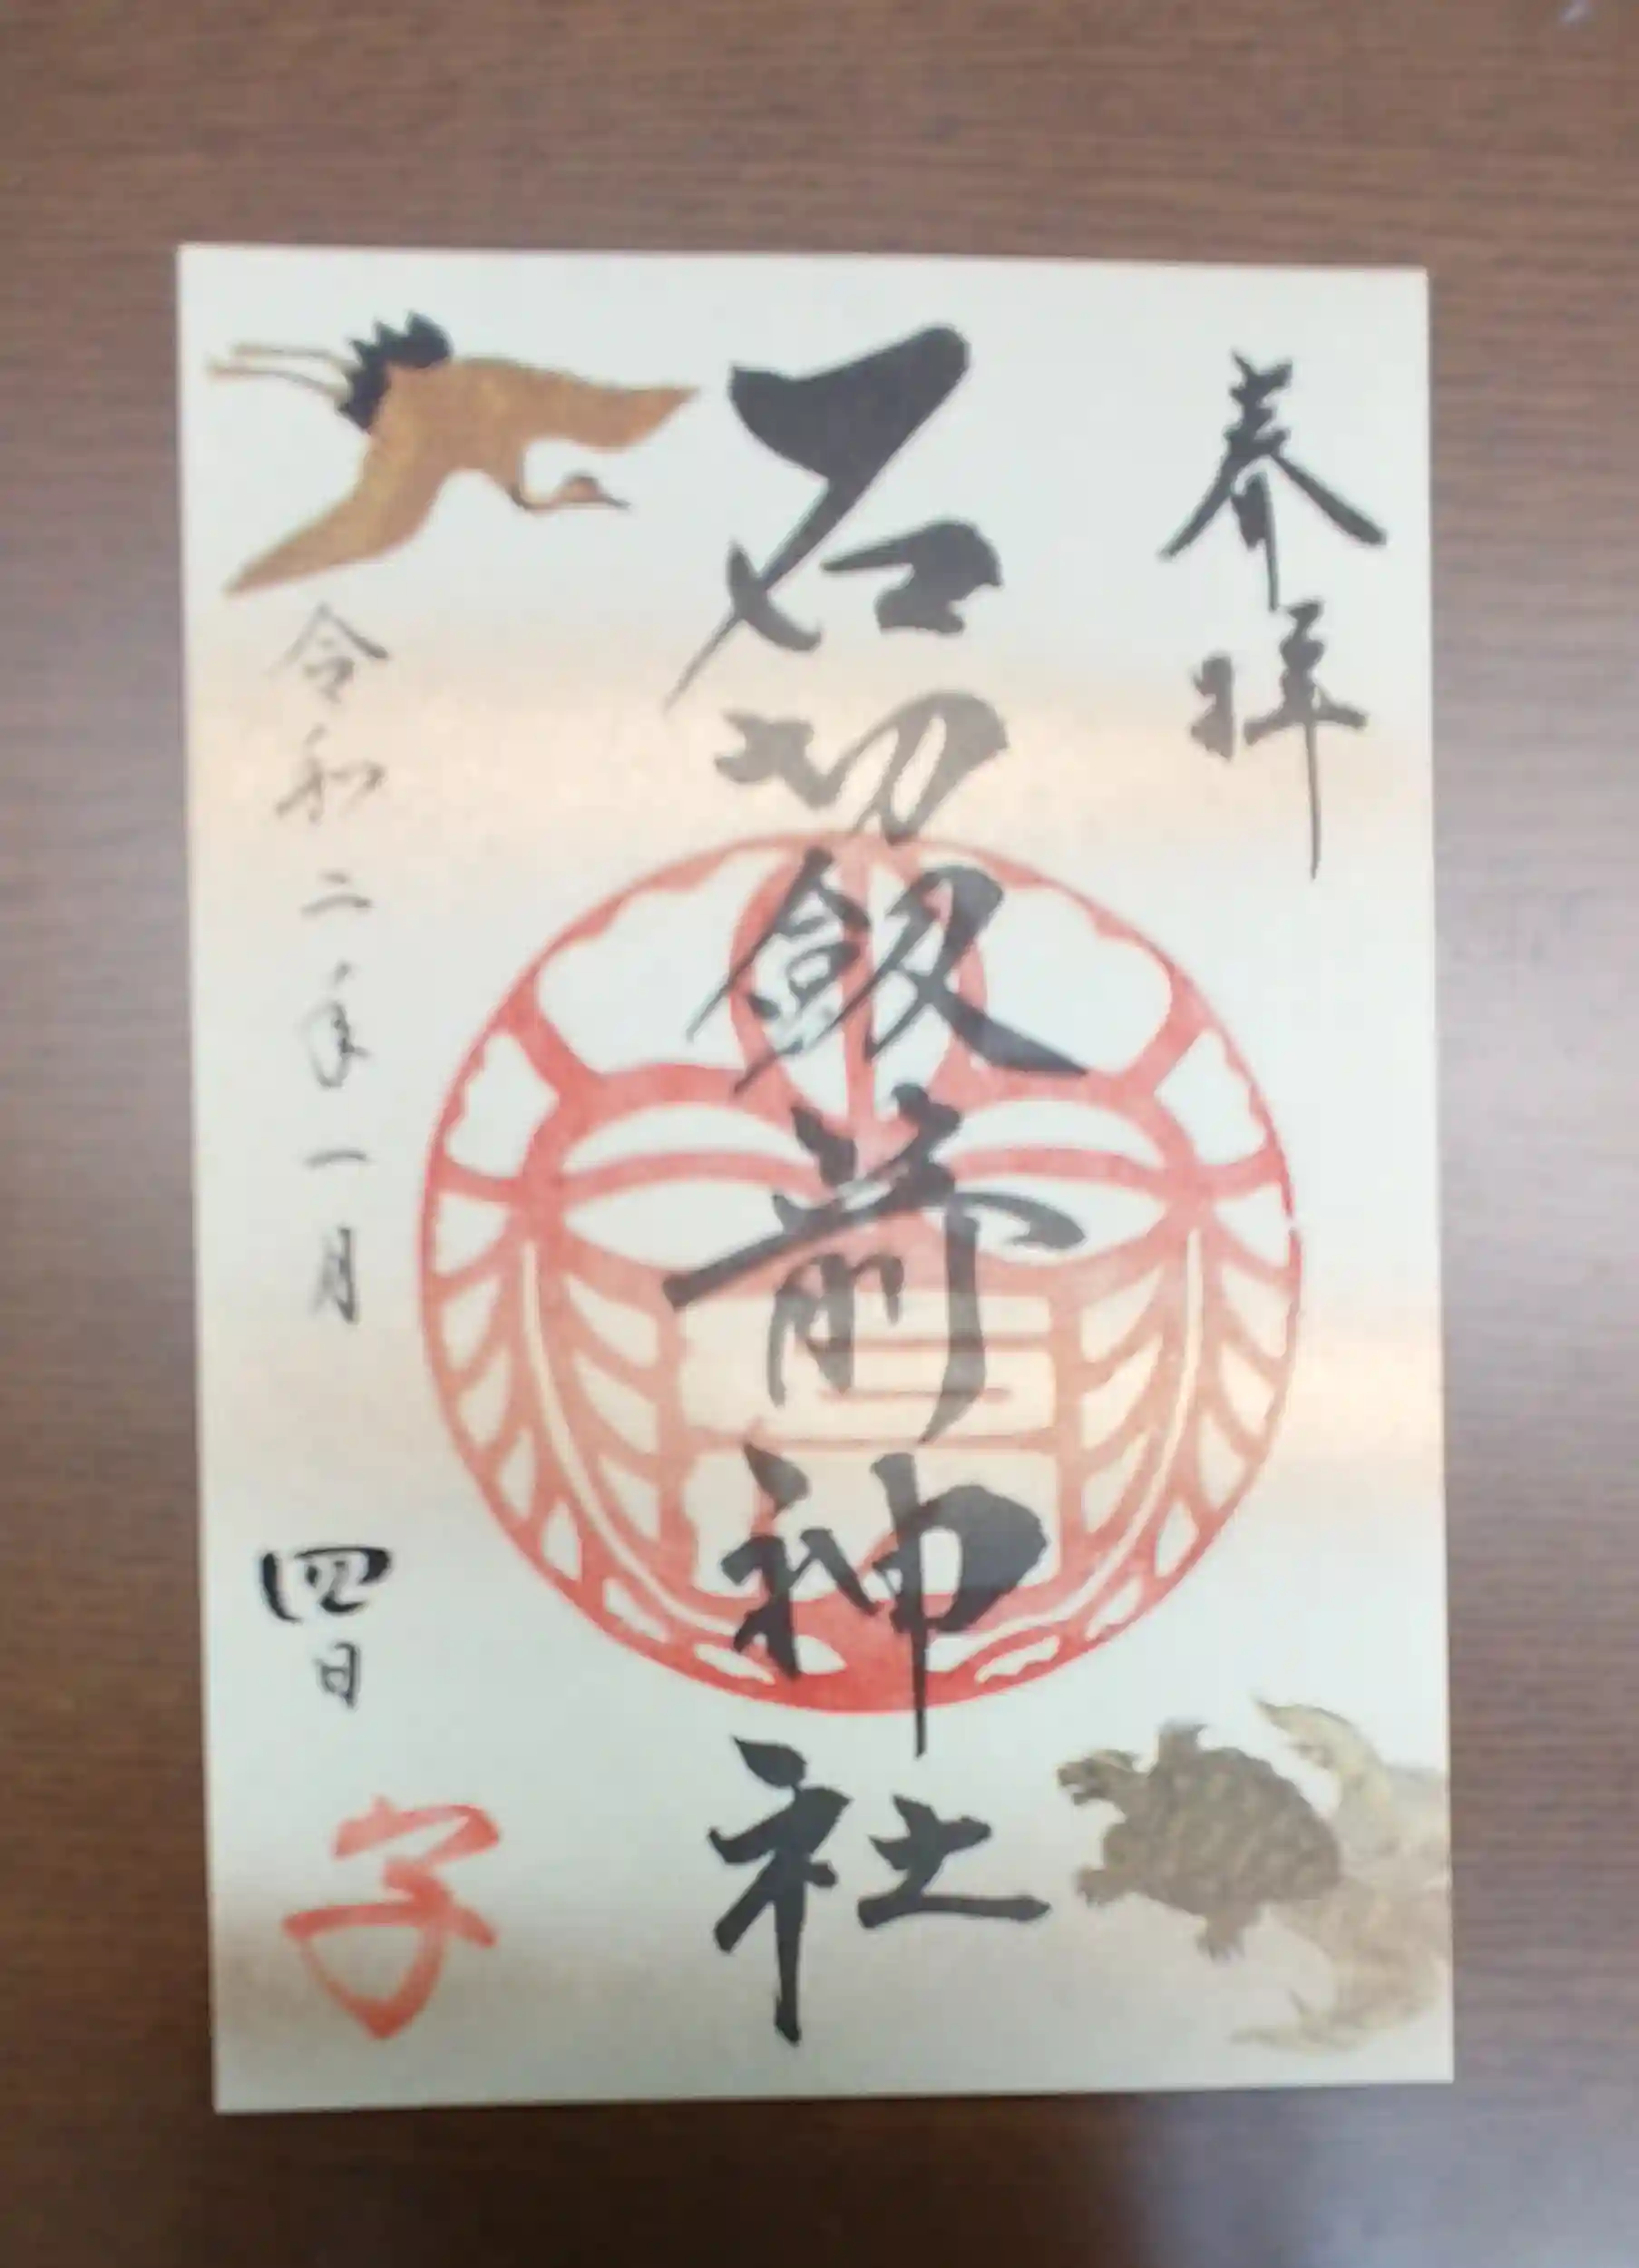 奉拝
石切劔前神社
令和二年一月四日
子